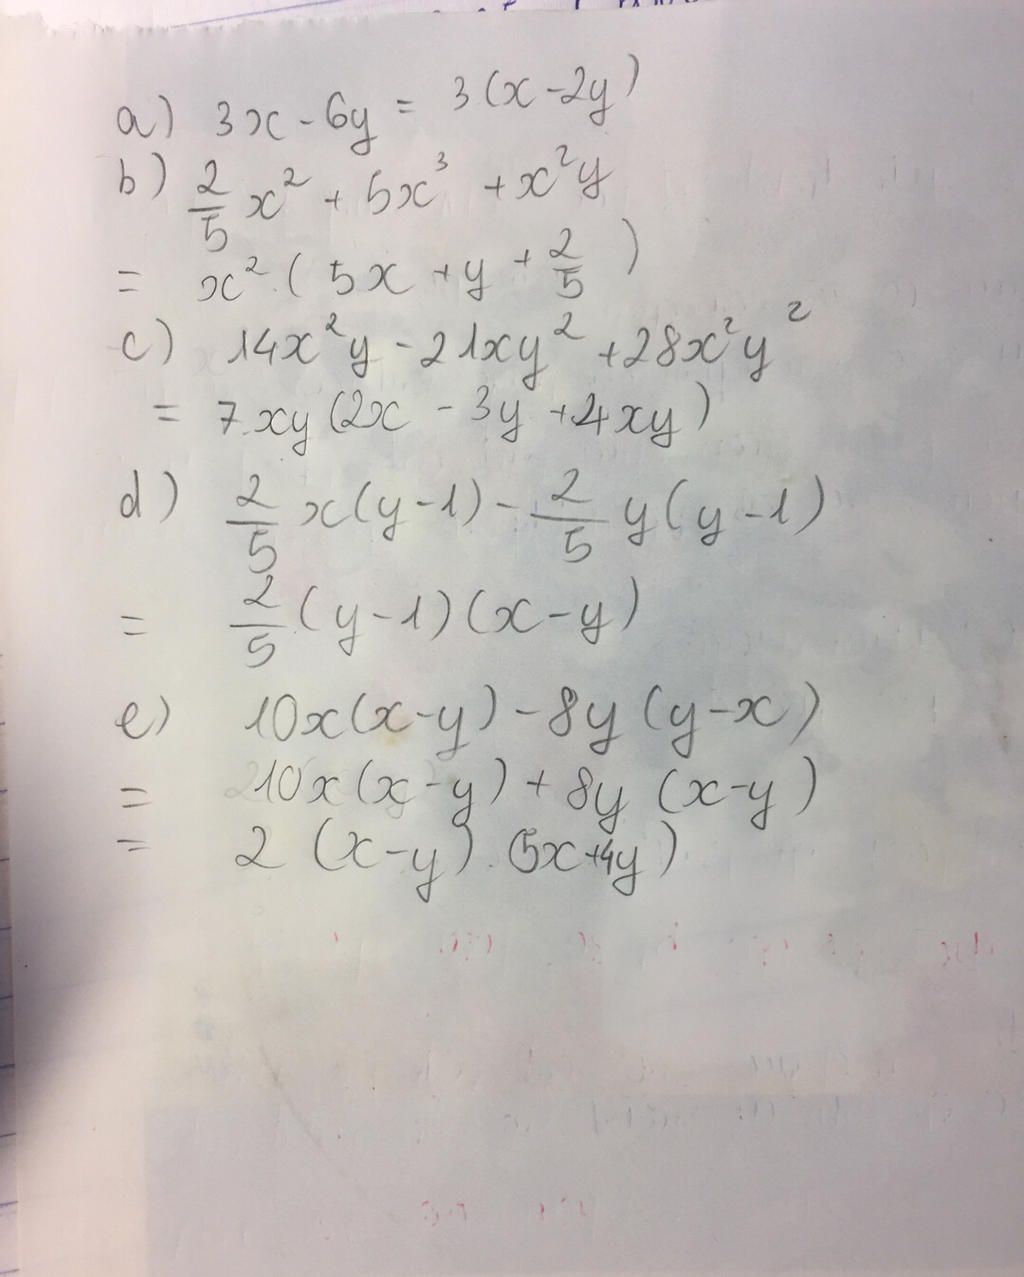 a) 3x - 6y = 3(x - 2y)
b) 2/5 x² + 5x³ + x²y
= x² (5x + y + 2/5)
c) 14x²y - 21xy² + 28x²y²
= 7.xy(2x - 3y + 4xy)
d) 2/5 x(y-1) - 2/5 y(y-1)
= 2/5 (y-1)(x-y)
e) 10x(x-y) - 8y(y-x)
= 10x(x-y) + 8y(x-y)
= 2 (x-y).(5x+4y)